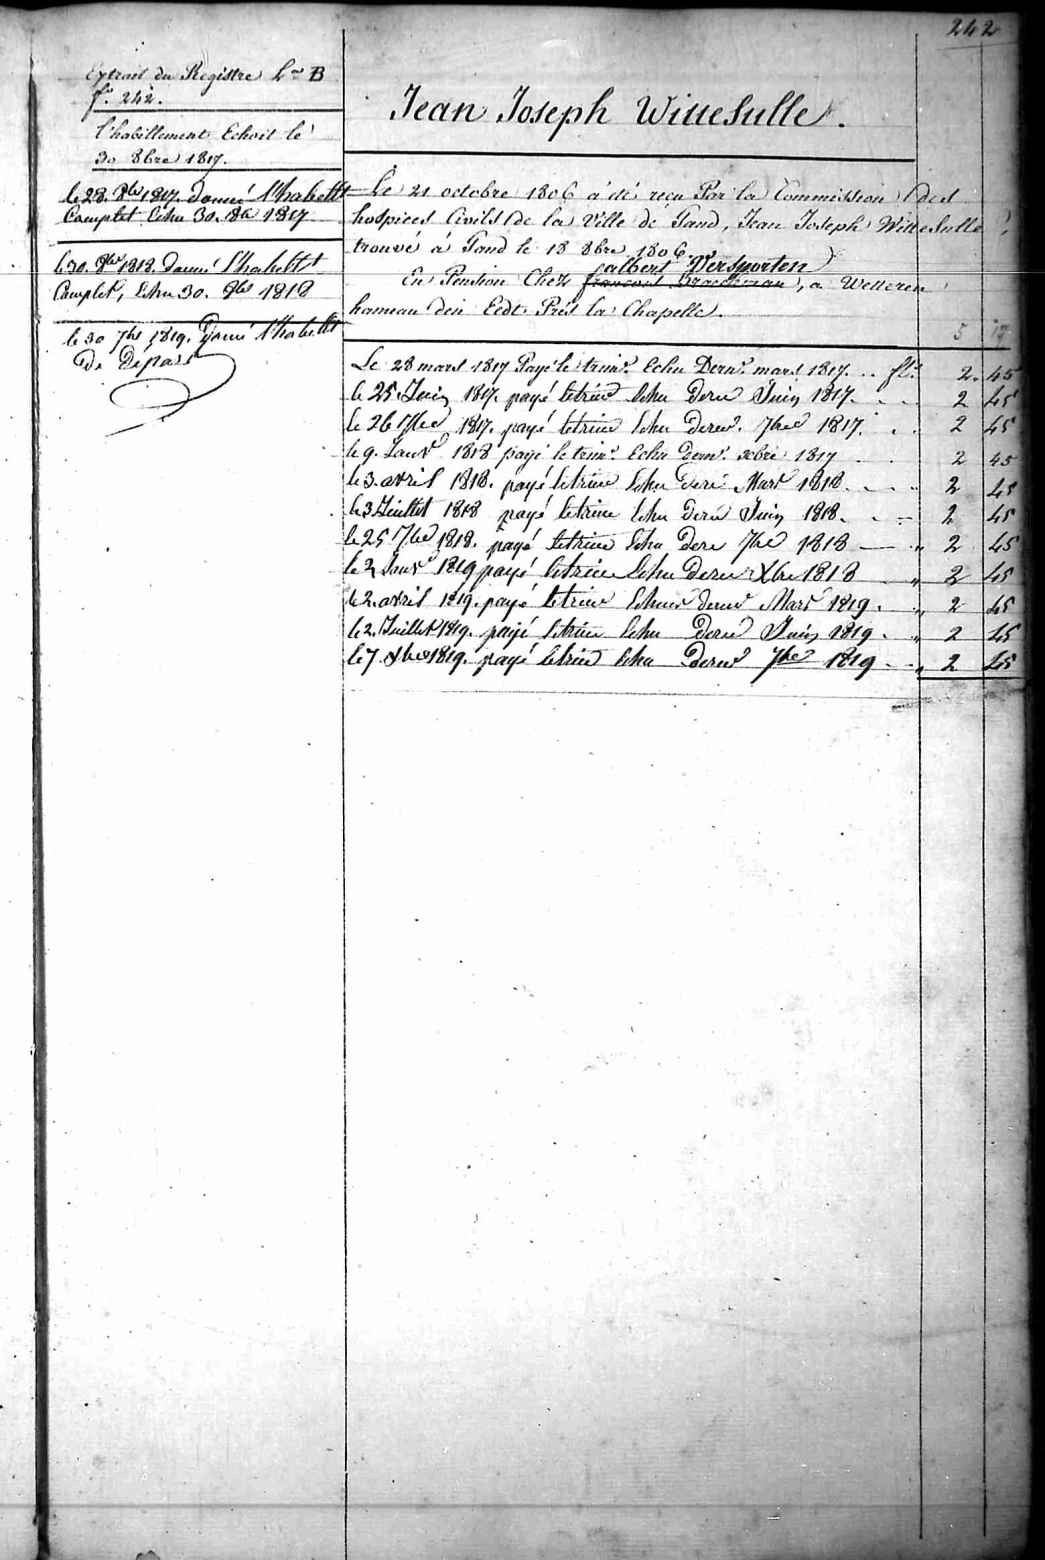 242
Extrait du Registre Lre B
fo. 242.
L'habillement Echoit le
30 8bre 1817.
le 28. 8bre 1817. donné l'habillt
Complet Echu 30. 8bre 1817
le 30. 8bre 1818. donné l'habillt
Complet, Echu 30. 8bre 1818
le 30 7bre 1819. Donné l'habillt
De Départ
Jean Joseph Wittesulle.
Le 21 octobre 1806 a été reçu Par la Commission des
hospices Civils de la Ville de Gand, Jean Joseph Wittesulle
trouvé à Gand le 18 8bre 1806.
albert Versporten
En Pension Chez françois Braeckman, a Wetteren
hameau den Eedt Près la Chapelle.
5 17
Le 28 mars 1817 Payé le trimre Echu Dernr mars 1817. .. fls 2. 45
le 25 Juin 1817. payé le trim Echu derni Juin 1817. 2 45
le 26 7bre 1817. payé le trim Echu dernr 7bre 1817. 2 45
le 9. Janvr 1818 payé le trimre Echu dernr xbre 1817 2 45
le 3. avril 1818. payé le trim Echu derni Mars 1818. 2 45
le 3 Juillet 1818 payé le trim Echu derni Juin 1818. 2 45
le 25 7bre 1818. payé le trim Echu dern 7bre 1818 — „ 2 45
le 2 Janvr 1819 payé le trim Echu dernr Xbre 1818 „ 2 45
le 2. avril 1819. payé le trim Echu dernr Mars 1819. „ 2 45
le 2. Juillet 1819. payé le trim Echu derni Juin 1819. „ 2 45
le 7. xbre 1819. payé le trim Echu dernr 7bre 1819 — „ 2 45